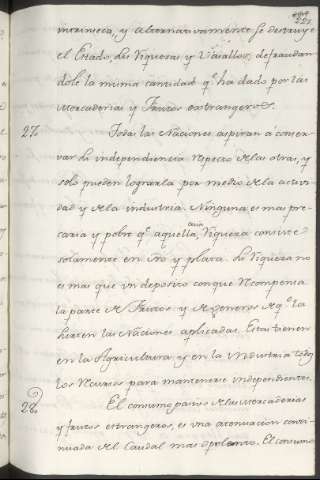 intrinseca, y alternativamente se destruye
el Estado, las Riquezas y Vasallos, defraudan
dole la misma cantidad q.e ha dado por las
Mercaderias y Frutos extrangeros.
27. Todas las Naciones aspiran a conser-
var la independiencia respecto de las otras, y
solo pueden lograrla por medio de la activi-
dad y de la industria. Ninguna es mas pre-
caria y pobre q.e aquella, Cuia
Riqueza consiste
solamente en Oro y plata. La Riqueza no
es mas que un deposito con que Recompensa
la parte de Frutos y de Generos de q.e la
la Agricultura, y en la Industria todos
los Recursos para mantenerse independientes.
28. El consumo de las Mercaderias
y frutos extrangeros, es una atenuacion conti-
nuada del Caudal mas opulento. El consumo